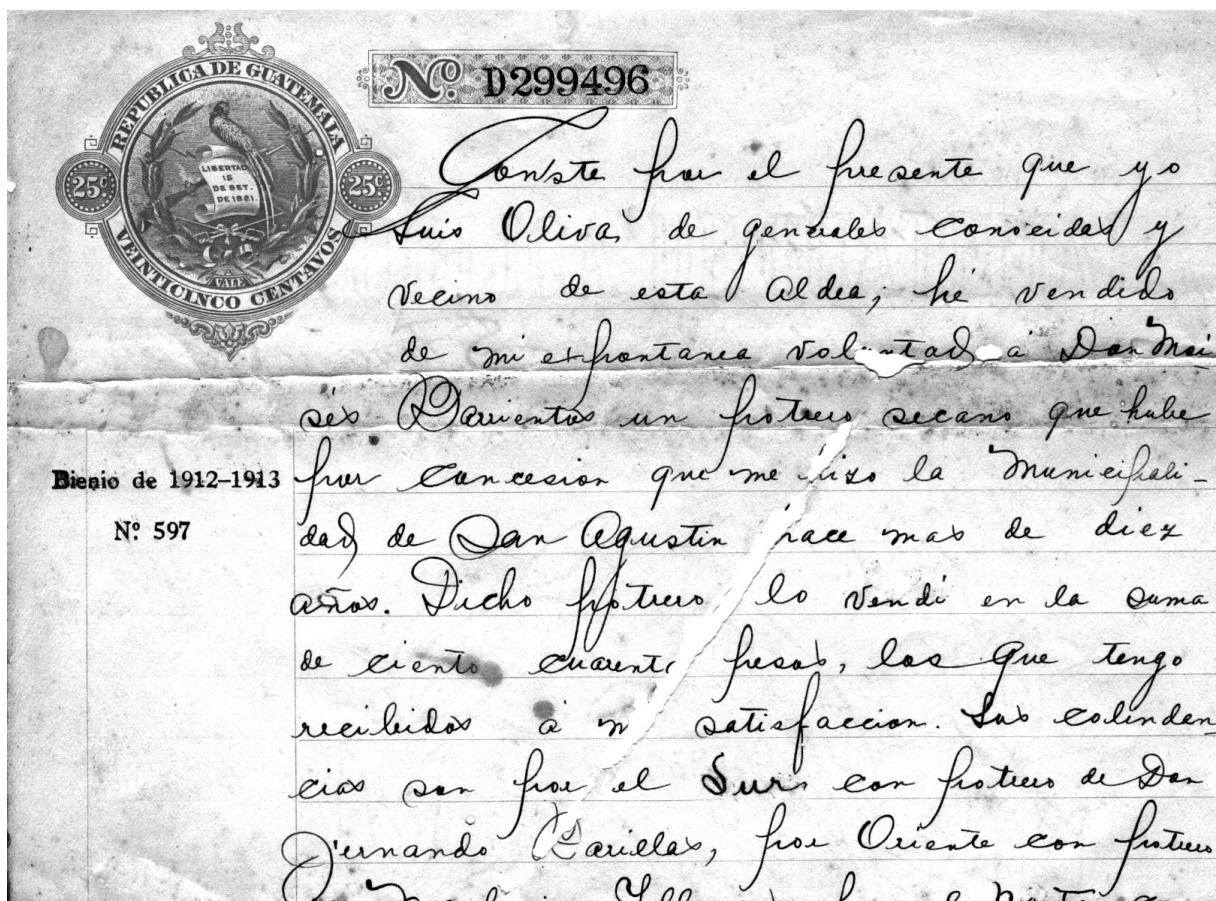 REPUBLICA DE GUATEMALA
25c.
LIBERTAD
15
DE SET.
DE 1821.
25c.
VALE
VEINTICINCO CENTAVOS
Nº D299496
Conste por el presente que yo
Luis Oliva, de generales conocidas y
vecino de esta Aldea; hé vendido
de mi espontanea voluntad á Don Moi
sés Barrientos un potrero secano que hube
Bienio de 1912–1913
Nº 597
por concesion que me hizo la Municipali-
dad de San Agustin hace mas de diez
años. Dicho potrero lo vendí en la suma
de ciento cuarenta pesos, los que tengo
recibidos á mi satisfaccion. Las colinden
cias son por el Sur con potrero de Don
Fernando Barillas, por Oriente con potrero